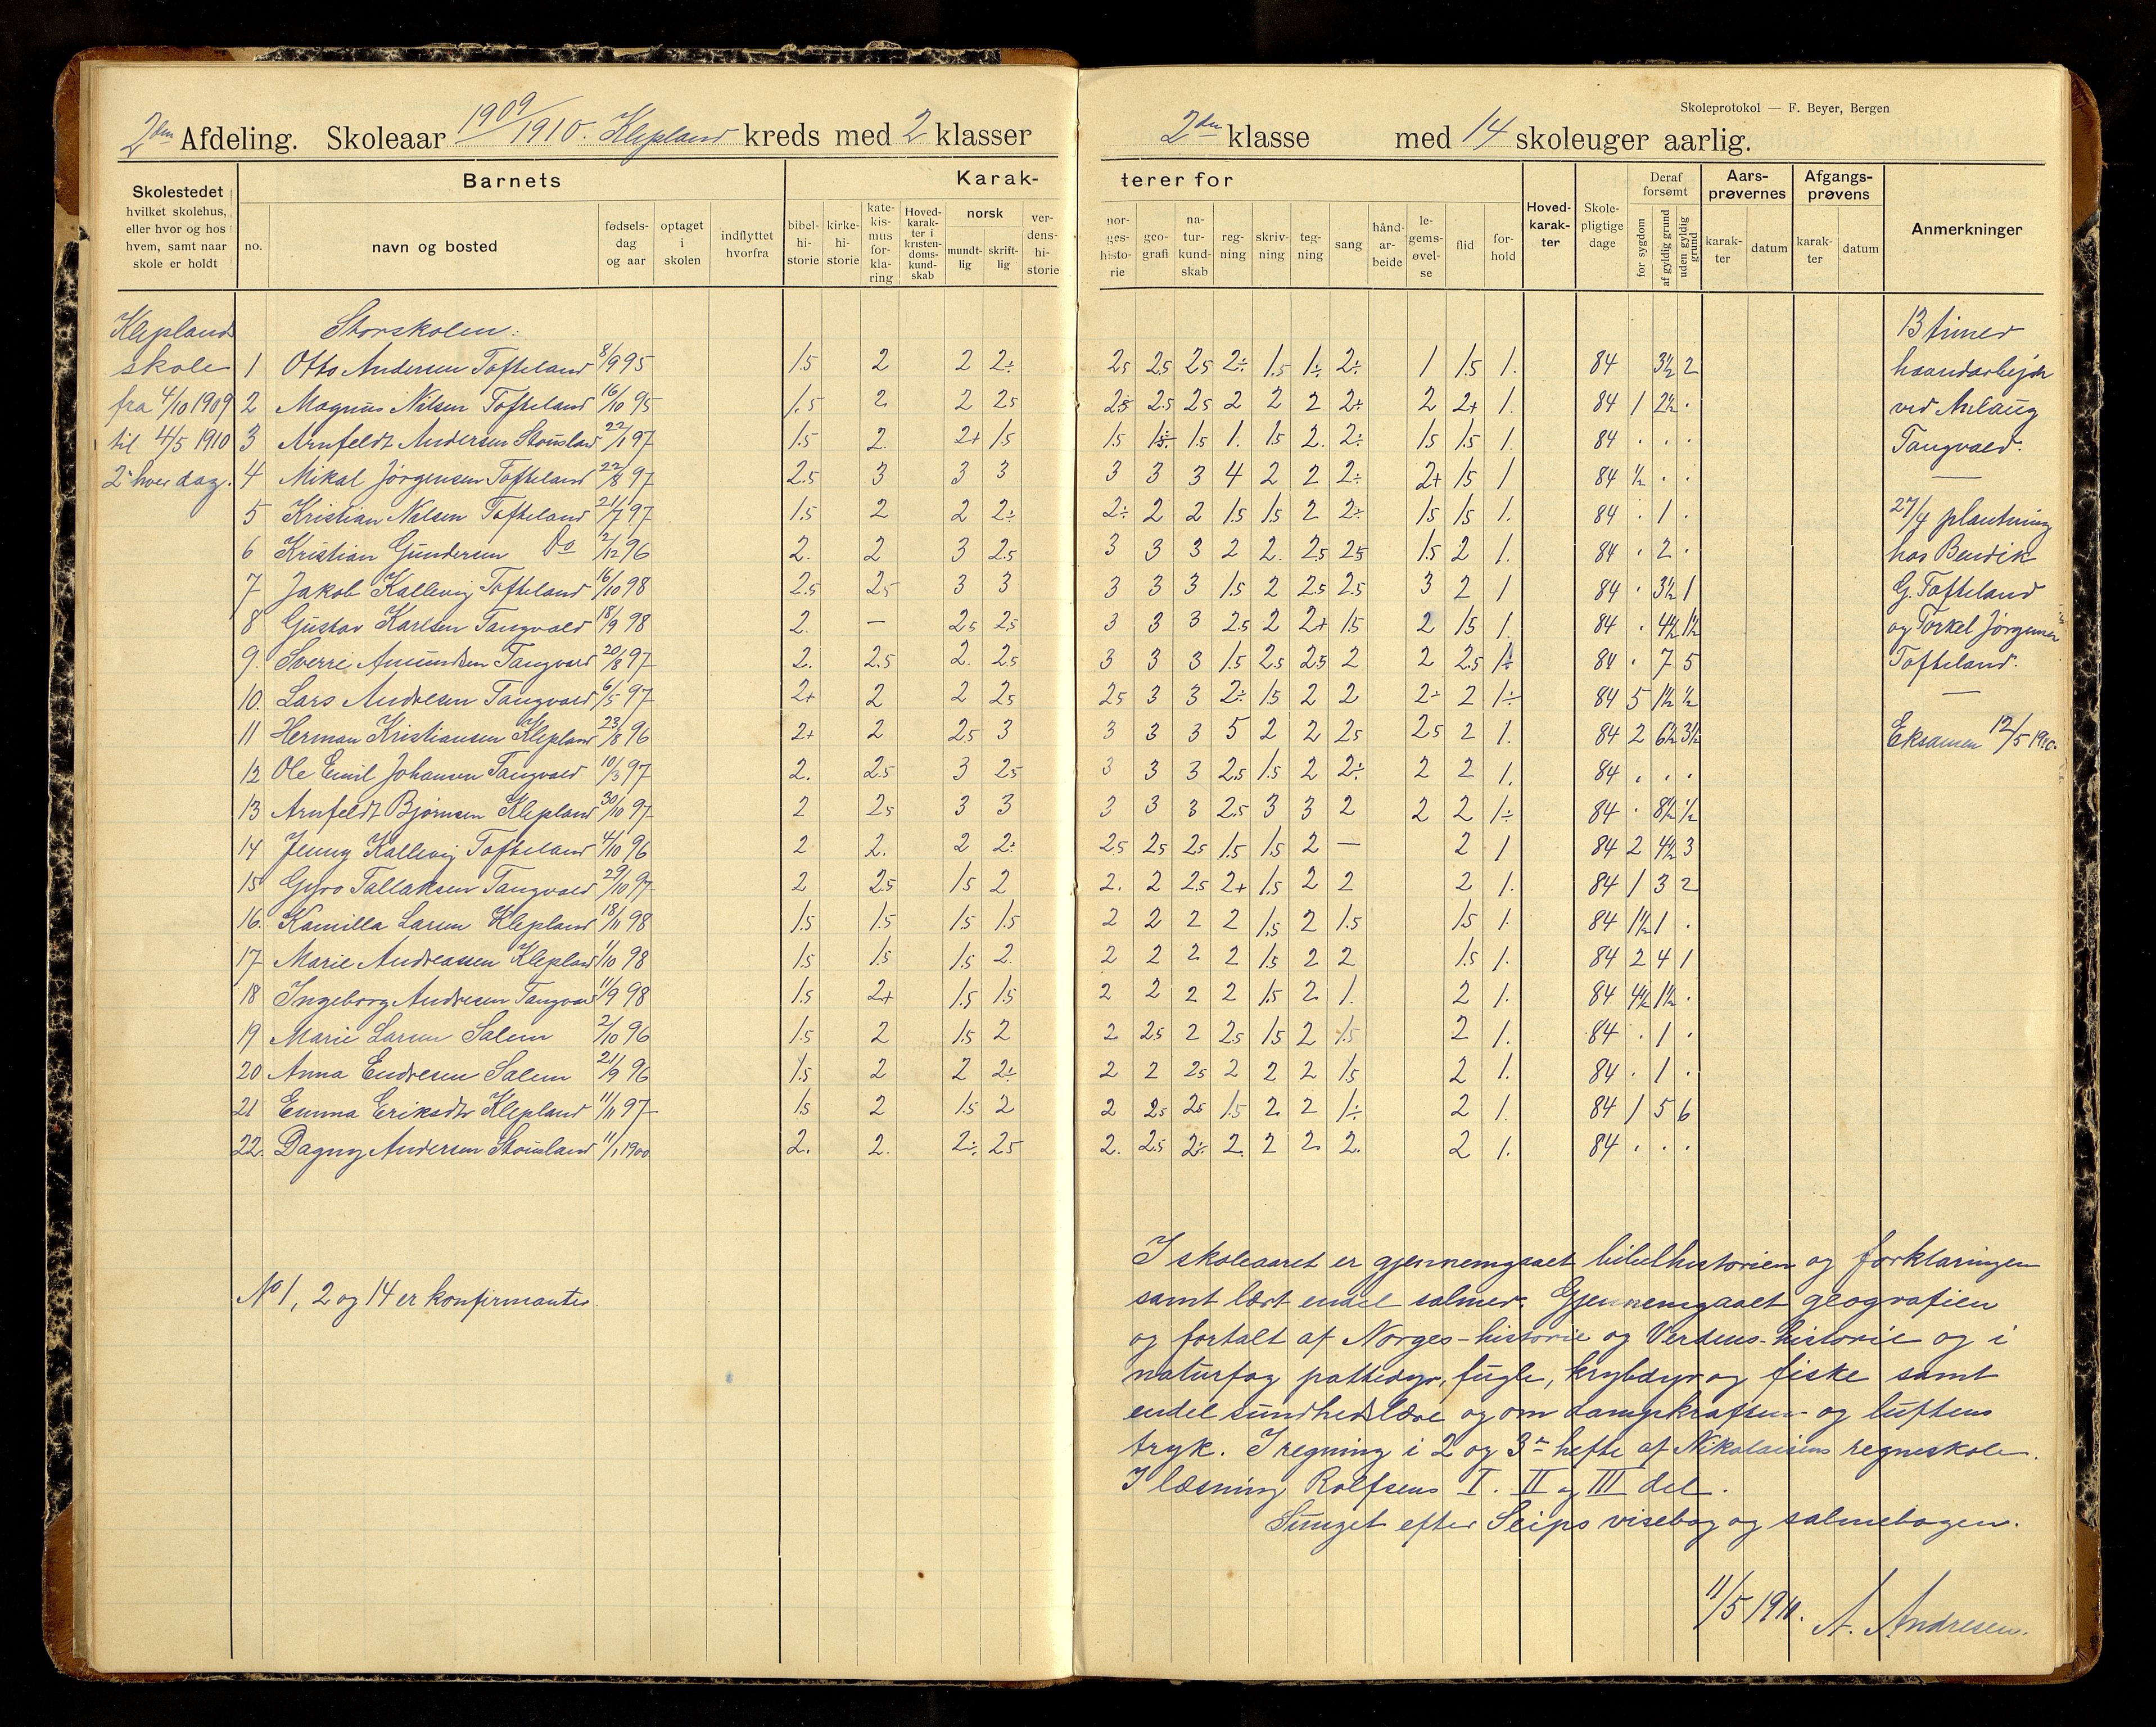 Skoleprotokol — F. Beyer, Bergen
2den Afdeling. Skoleaar 1909/1910. Klepland kreds med 2 klasser
2den klasse med 14 skoleuger aarlig.
Skolestedet hvilket skolehus, eller hvor og hos hvem, samt naar skole er holdt
Barnets
no. navn og bosted fødselsdag og aar optaget i skolen indflyttet hvorfra
Karakterer for
bibelhistorie kirkehistorie katekismus forklaring Hovedkarakter i kristendomskundskab norsk mundtlig skriftlig verdenshistorie
norgeshistorie geografi naturkundskab regning skrivning tegning sang håndarbeide legemsøvelse flid forhold
Hovedkarakter Skolepligtige dage Deraf forsømt for sygdom af gyldig grund uden gyldig grund
Aarsprøvernes karakter datum Afgangsprøvens karakter datum Anmerkninger
Klepland Storskolen. 13 timer
skole 1 Otto Andersen Tofteland 8/9 95 1.5 2 2 2÷ 25 2.5 25 2÷ 1.5 1÷ 2÷ 1 1.5 1. 84 3½ 2 haandarbejde
fra 4/10 1909 2 Magnus Nilsen Tofteland 16/10 95 1.5 2. 2 25 2.5 2.5 25 2 2 2 2÷ 2 2+ 1. 84 1 2½ . ved
til 4/5 1910 3 Arnfeldt Andersen 22/1 97 1.5 2. 2+ 1.5 1.5 1.5 1. 1.5 2. 2÷ 1.5 1.5 1. 84 . . . Tangvald.
2 hver dag. 4 Mikal Jørgensen Tofteland 22/8 97 2.5 3 3 3 3 3 3 4 2 2 2÷ 2+ 1.5 1 84 ½ . .
5 Kristian Nilsen Tofteland 21/7 97 1.5 2 2 2÷ 2÷ 2 2 1.5 1.5 2 2÷ 1.5 1.5 1. 84 . 1 . 27/4 plantning
6 Kristian Gundersen Do 2/12 96 2. 2 3 2.5 3 3 3 2 2. 2.5 25 1.5 2 1. 84 . 2 . hos Bendik
7 Jakob Kallevig Tofteland 16/10 98 2.5 25 3 3 3 3 3 1.5 2 2.5 2.5 3 2 1 84 . 3½ 1 G. Tofteland
8 Gustav Karlsen Tangvald 18/9 98 2. — 25 25 3 3 3 2.5 2 2+ 1.5 2 1.5 1. 84 . 4½ 1½ og Torkel Jørgensen
9. Sverre Amundsen Tangvald 20/8 97 2. 2.5 2. 25 3 3 3 1.5 2.5 2.5 2 2 2.5 1÷ 84 . 7 5 Tofteland.
10. Lars Andresen Tangvald 6/5 97 2+ 2 2 25 25 3 3 2÷ 1.5 2 2 2÷ 2 1÷ 84 5 1½ ½
11 Herman Kristiansen Klepland 23/8 96 2+ 2 2.5 3 3 3 3 5 2 2 25 2.5 2 1. 84 2 6½ 3½ Eksamen 12/5 1910.
12 Ole Emil Johansen Tangvald 10/3 97 2. 2.5 3 25 3 3 3 2.5 1.5 2 2÷ 2 2 1. 84 . . .
13 Arnfeldt Bjørnsen Klepland 30/10 97 2 25 3 3 3 3 3 2.5 3 3 2 2 2 1÷ 84 . 8½ ½
14 Jenny Kallevig Tofteland 4/10 96 2 2. 2 2÷ 2.5 25 25 1.5 1.5 2 — 2 1 84 2 4½ 3
15 Gyro Tallaksen Tangvald 29/10 97 2 2.5 1.5 2 2. 2 2.5 2+ 1.5 2 2 2 1. 84 1 3 2
16. Kamilla Larsen Klepland 18/11 98 1.5 1.5 1.5 1.5 2 2 2 2 1.5 2 1.5 1.5 1. 84 1½ 1 .
17 Marie Andreassen Klepland 1/10 98 1.5 1.5 1.5 2. 2 2 2 2 1.5 2 2 1.5 1. 84 2 4 1
18 Ingeborg Andresen Tangvald 11/9 98 1.5 2+ 1.5 1.5 2 2 2 2 1.5 2 1. 2 1. 84 4½ 1½ .
19 Marie Larsen Salem 2/10 96 1.5 2 1.5 2 2 2.5 2 2.5 1.5 2 1.5 2 1. 84 . 1 .
20 Anna Endresen Salem 21/9 96 1.5 2 2 2÷ 2 2 25 2 2 2 1.5 2 1. 84 . 1 .
21 Emma Eriksdtr Klepland 11/11 97 1.5 2 1.5 2 2 25 25 1.5 2 2 1÷ 2 1. 84 1 5 6
22. Dagny Andersen 11/1 1900 2. 2. 2÷ 25 2. 2.5 2÷ 2. 2 2 2. 2 1. 84 . . .
No 1, 2 og 14 er konfirmanter.
I skoleaaret er gjennemgaaet bibelhistorien og forklaringen
samt lært endel salmer. Gjennemgaaet geografien
og fortalt af Norges-historie og Verdens-historie og i
naturfag pattedyr, fugle, krybdyr og fiske samt
endel sundhedslære og om dampkraften og luftens
tryk. I regning i 2 og 3die hefte af Nikolaisens regneskole.
I læsning Rolfsens I. II og III del.
Sunget efter Seips visebog og salmebogen.
11/5 1910. A. Andresen.